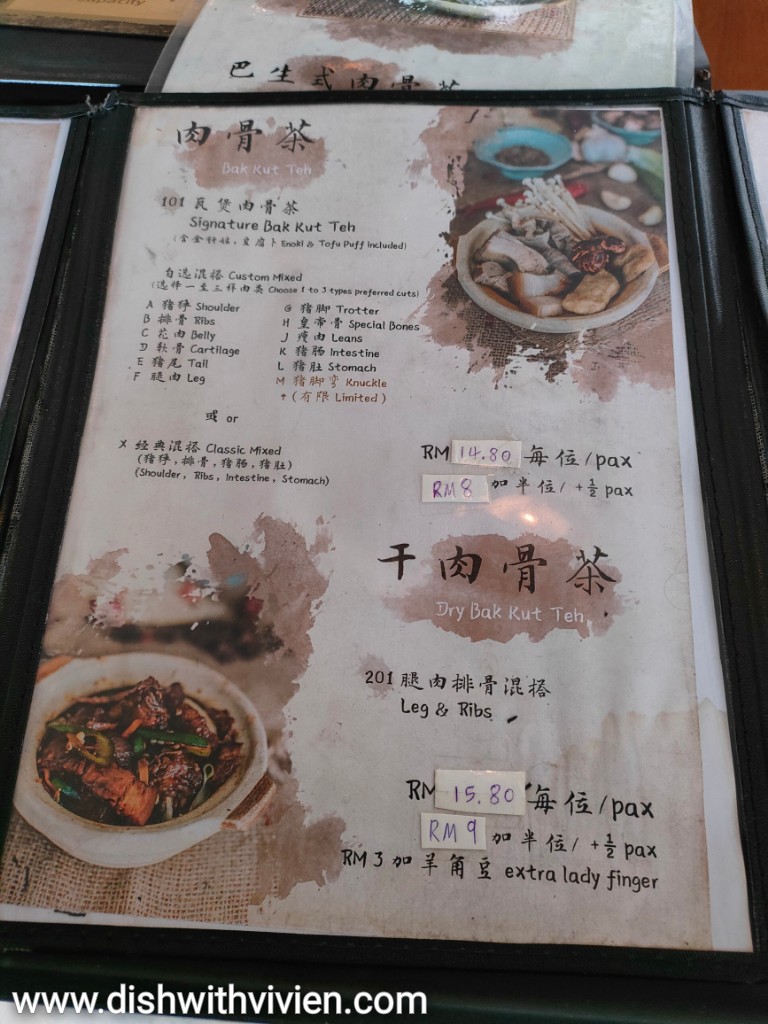 capacity
巴生式肉骨茶
肉骨茶
Bak Kut Teh
101 瓦煲肉骨茶
Signature Bak Kut Teh
(含金针菇，豆腐卜 Enoki & Tofu Puff included)
自选混搭 Custom Mixed
(选择一至三样肉类 Choose 1 to 3 types preferred cuts)
A 猪𦟌 Shoulder
B 排骨 Ribs
C 花肉 Belly
D 软骨 Cartilage
E 猪尾 Tail
F 腿肉 Leg
G 猪脚 Trotter
H 皇帝骨 Special Bones
J 瘦肉 Leans
K 猪肠 Intestine
L 猪肚 Stomach
M 猪脚弯 Knuckle
↑ (有限 Limited)
或 or
X 经典混搭 Classic Mixed
(排骨，猪肠，猪肚)
(Shoulder, Ribs, Intestine, Stomach)
RM 14.80 每位/pax
RM 8 加半位/ +½ pax
干肉骨茶
Dry Bak Kut Teh
201 腿肉排骨混搭
Leg & Ribs
RM 15.80 每位/pax
RM 9 加半位/ +½ pax
RM 3 加羊角豆 extra lady finger
www.dishwithvivien.com